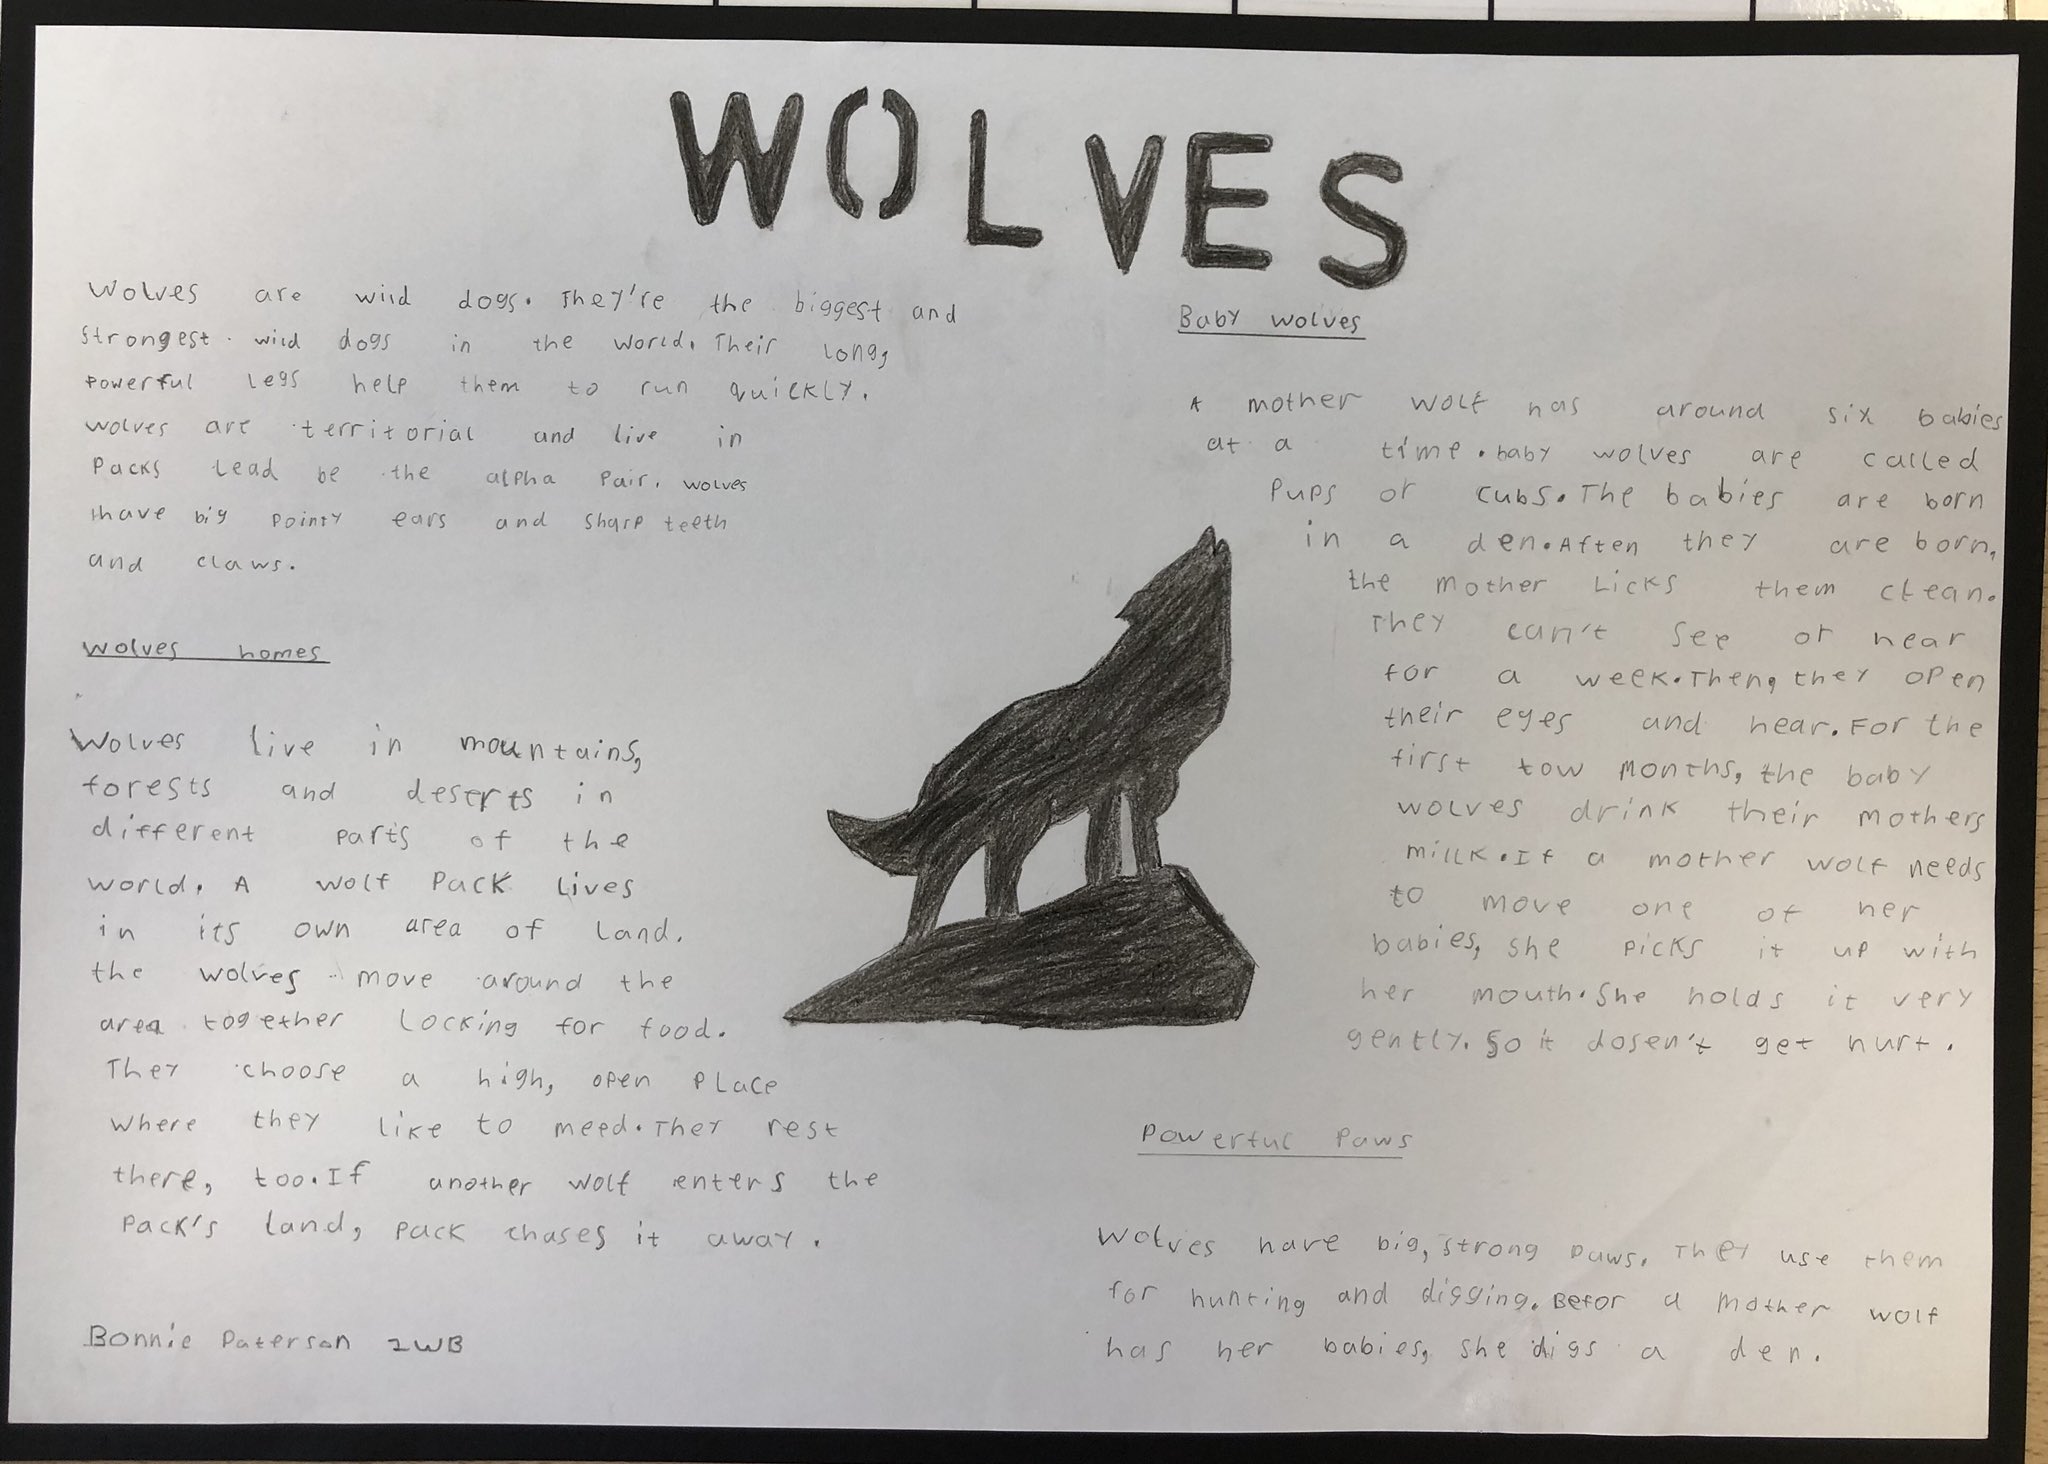 WOLVES
Wolves are wild dogs. They're the biggest and
strongest wild dogs in the world. Their long,
powerful legs help them to run quickly.
wolves are territorial and live in
packs lead be the alpha pair. wolves
have big pointy ears and sharp teeth
and claws.
Wolves homes
Wolves live in mountains,
forests and deserts in
different parts of the
world. A wolf pack lives
in its own area of land.
the wolves move around the
area together locking for food.
They choose a high, open place
where they like to meed. They rest
there, too. If another wolf enters the
pack's land, pack chases it away.
Bonnie Paterson 2WB
Baby wolves
A mother wolf has around six babies
at a time. baby wolves are called
pups or cubs. The babies are born
in a den. Aften they are born,
the mother licks them clean.
They can't see or hear
for a week. Then, they open
their eyes and hear. For the
first tow months, the baby
wolves drink their mothers
millk. If a mother wolf needs
to move one of her
babies, she picks it up with
her mouth. She holds it very
gently. So it dosen't get hurt.
Powerful Paws
Wolves have big, strong paws. They use them
for hunting and digging. Befor a mother wolf
has her babies, she digs a den.